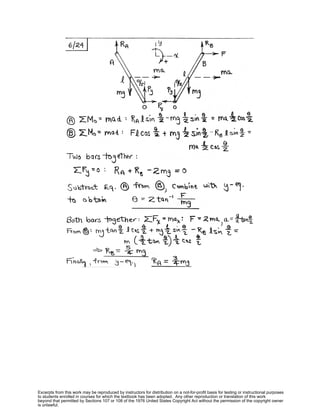 6/24
RA
y
x
+
RB
F
A
B
ma
ma
l
l
mg
mg
θ/2
θ/2
Py
Py
O
Px
O
Ⓐ ΣMo = mad : RA l sin θ/2 - mg l/2 sin θ/2 = ma l/2 cos θ/2
Ⓑ ΣMo = mad : Fl cos θ/2 + mg l/2 sin θ/2 - RB l sin θ/2 =
ma l/2 cos θ/2
Two bars together :
ΣFy = 0 : RA + RB - 2mg = 0
Subtract Eq. Ⓐ from Ⓑ, combine with y-eq.
to obtain θ = 2 tan⁻¹ F/mg
Both bars together: ΣFx = max : F = 2ma, a = g/2 tan θ/2
From Ⓑ: mg tan θ/2 l cos θ/2 + mg l/2 sin θ/2 - RB l sin θ/2 =
m (g/2 tan θ/2) l/2 cos θ/2
⇒ RB = 5/4 mg
Finally, from y-eq., RA = 3/4 mg
Excerpts from this work may be reproduced by instructors for distribution on a not-for-profit basis for testing or instructional purposes
to students enrolled in courses for which the textbook has been adopted. Any other reproduction or translation of this work
beyond that permitted by Sections 107 or 108 of the 1976 United States Copyright Act without the permission of the copyright owner
is unlawful.